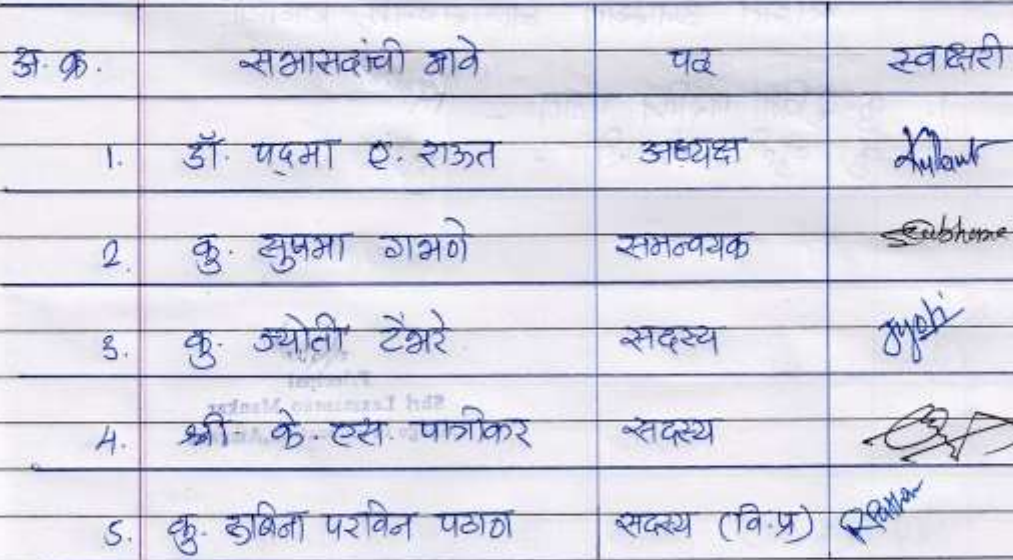 अ. क्र. सभासदांची नावे पद स्वाक्षरी
1. डॉ. पद्मा ए. राऊत अध्यक्ष
2. कु. सुषमा गभणे समन्वयक
3. कु. ज्योती टेंभरे सदस्य Jyoti
4. श्री के. एस. पात्रीकर सदस्य
5. कु. परविन पठाण सदस्य (वि.प्र)